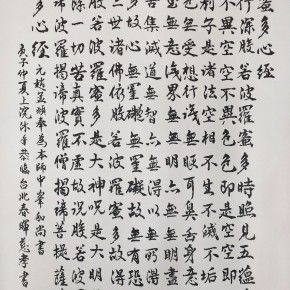 蜜多心經
行深般若波羅蜜多時照見五蘊
不異空空不異色色即是空空即
利子是諸法空相不生不滅不垢
色無受想行識無眼耳鼻舌身意
至無意識界無無明亦無無明盡
苦集滅道無智亦無得以無所得
多故心無罣礙無罣礙故無有恐
三世諸佛依般若波羅蜜多故得
般若波羅蜜多是大神咒是大明
除一切苦真實不虛故
波羅揭諦波羅僧揭諦菩提薩
多心經 元趙孟頫奉為本師中峯和尚書
庚子仲夏上浣沐手恭臨台北春暉慈孝書